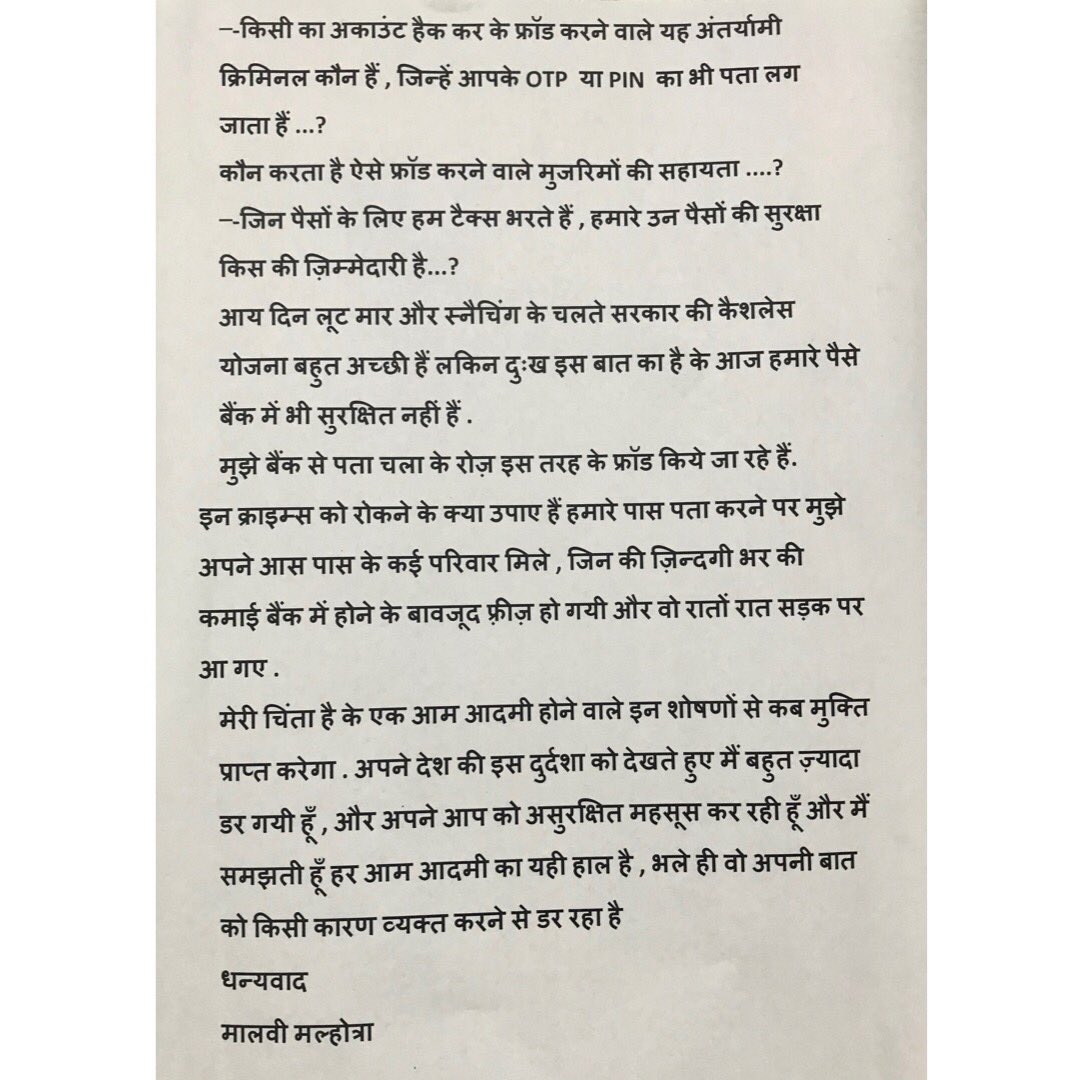 –-किसी का अकाउंट हैक कर के फ्रॉड करने वाले यह अंतर्यामी
क्रिमिनल कौन हैं , जिन्हें आपके OTP या PIN का भी पता लग
जाता हैं ...?
कौन करता है ऐसे फ्रॉड करने वाले मुजरिमों की सहायता ....?
–-जिन पैसों के लिए हम टैक्स भरते हैं , हमारे उन पैसों की सुरक्षा
किस की ज़िम्मेदारी है...?
आय दिन लूट मार और स्नैचिंग के चलते सरकार की कैशलेस
योजना बहुत अच्छी हैं लकिन दुःख इस बात का है के आज हमारे पैसे
बैंक में भी सुरक्षित नहीं हैं .
मुझे बैंक से पता चला के रोज़ इस तरह के फ्रॉड किये जा रहे हैं.
इन क्राइम्स को रोकने के क्या उपाए हैं हमारे पास पता करने पर मुझे
अपने आस पास के कई परिवार मिले , जिन की ज़िन्दगी भर की
कमाई बैंक में होने के बावजूद फ़्रीज़ हो गयी और वो रातों रात सड़क पर
आ गए .
मेरी चिंता है के एक आम आदमी होने वाले इन शोषणों से कब मुक्ति
प्राप्त करेगा . अपने देश की इस दुर्दशा को देखते हुए मैं बहुत ज़्यादा
डर गयी हूँ , और अपने आप को असुरक्षित महसूस कर रही हूँ और मैं
समझती हूँ हर आम आदमी का यही हाल है , भले ही वो अपनी बात
को किसी कारण व्यक्त करने से डर रहा है
धन्यवाद
मालवी मल्होत्रा